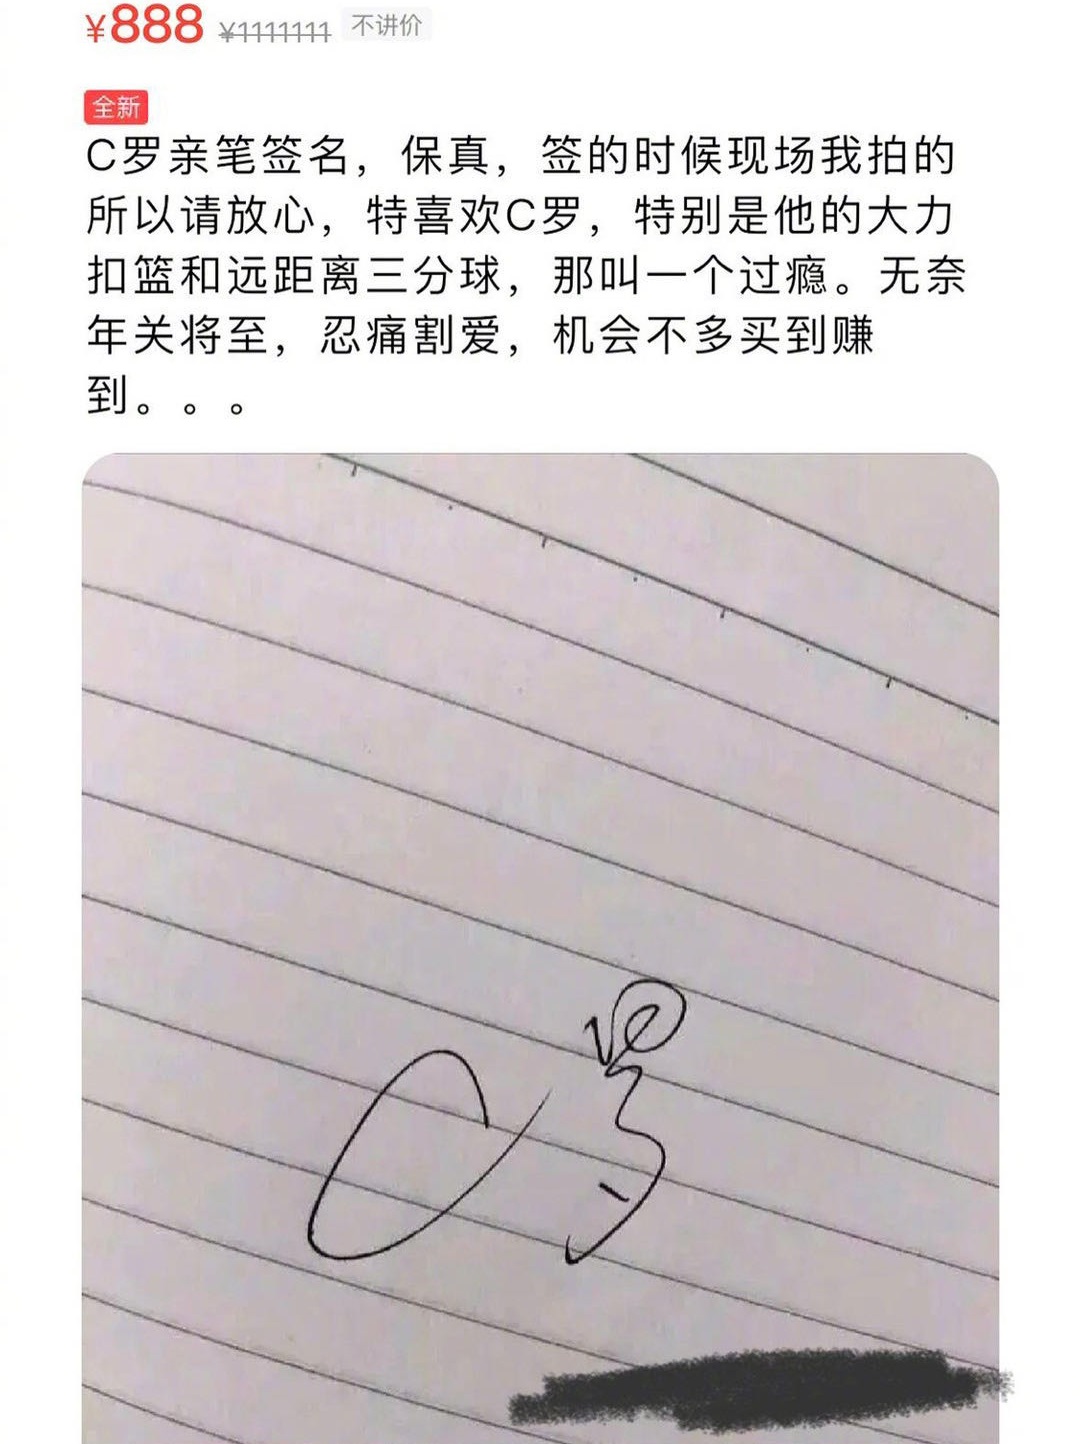 ¥888 ¥1111111 不讲价
全新
C罗亲笔签名，保真，签的时候现场我拍的
所以请放心，特喜欢C罗，特别是他的大力
扣篮和远距离三分球，那叫一个过瘾。无奈
年关将至，忍痛割爱，机会不多买到赚
到。。。
C罗